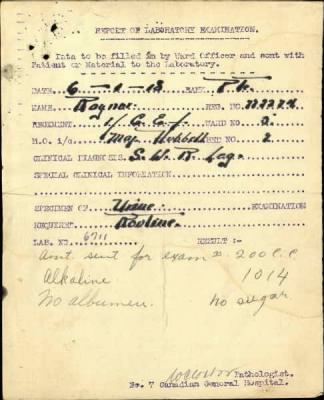 REPORT OF LABORATORY EXAMINATION.
Data to be filled in by Ward Officer and sent with
Patient or Material to the Laboratory.
DATE 6 - 1 - 18 RANK
NAME REG. NO. 222224
REGIMENT 1/ C. E. F. WARD NO 2.
M.O. i/c Maj. BET NO 2
CLINICAL DIAGNOSIS. G. W. R. Leg.
SPECIAL CLINICAL INFORMATION
SPECIMEN OF Urine. EXAMINATION
REQUIRED Routine.
LAB. NO. 6711 RESULT :-
Amt sent for exam 200 c.c
Alkaline 1014
No albumen. No sugar
Pathologist.
No. 7 Canadian General Hospital.